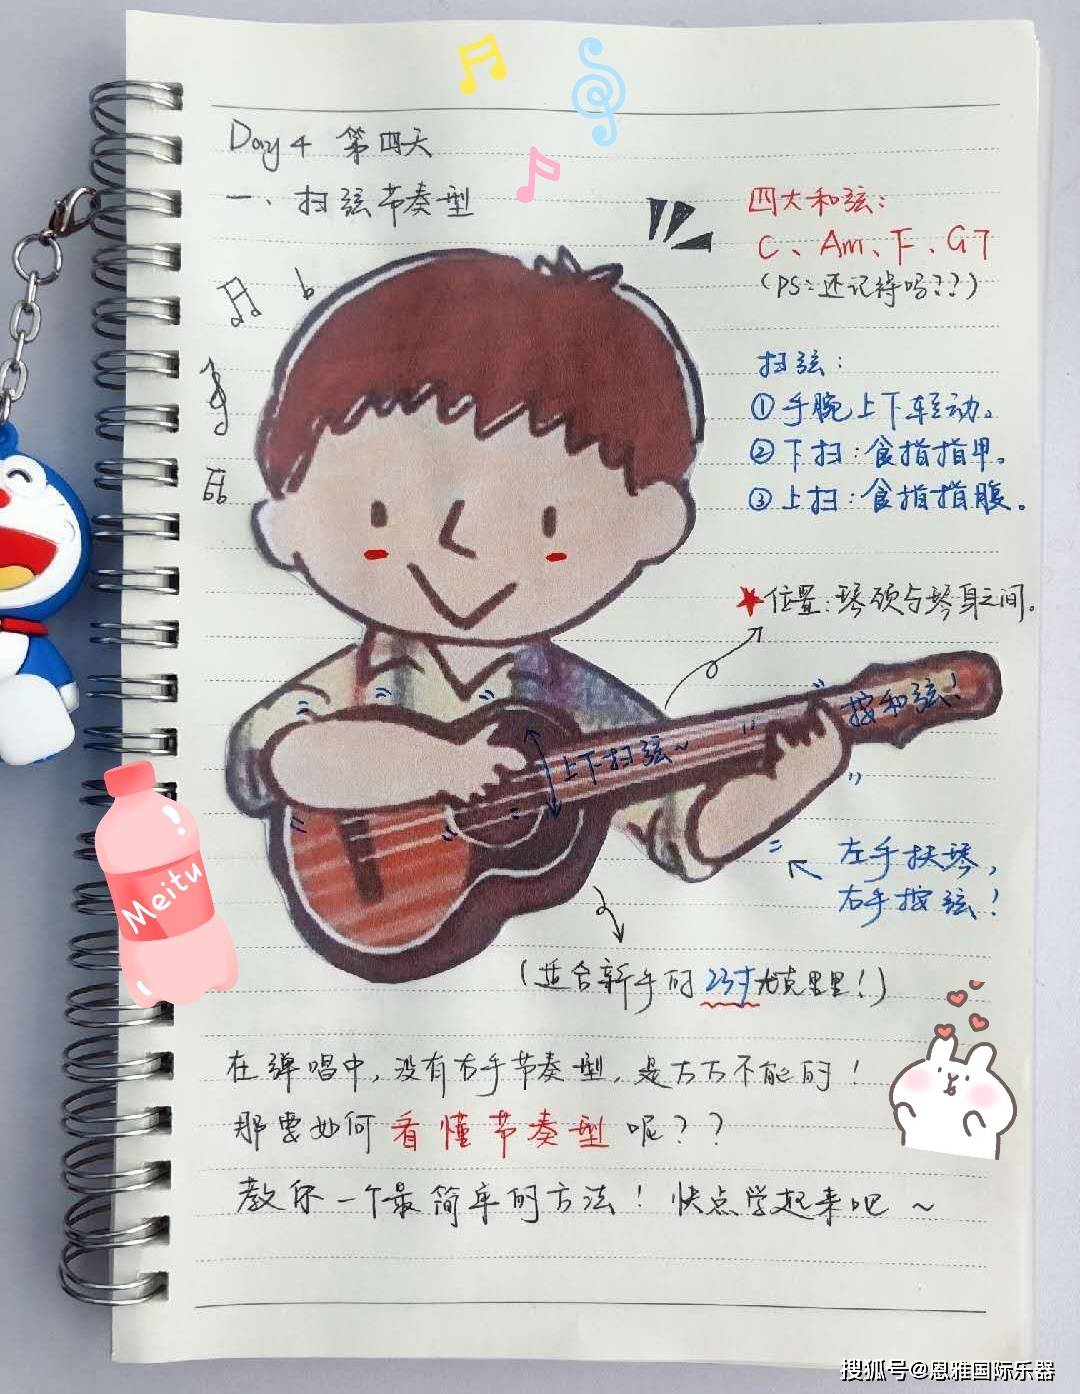 Day 4 第四天
一、扫弦节奏型
四大和弦:
C、Am、F、G7
(PS:还记得吗??)
扫弦:
①手腕上下轻动。
②下扫:食指指甲。
③上扫:食指指腹。
★位置:琴颈与琴身之间。
按和弦!
上下扫弦~
左手扶琴,
右手按弦!
(适合新手的23寸尤克里里!)
Meitu
在弹唱中,没有右手节奏型,是万万不能的!
那要如何看懂节奏型呢??
教你一个最简单的方法!快点学起来吧~
搜狐号@恩雅国际乐器